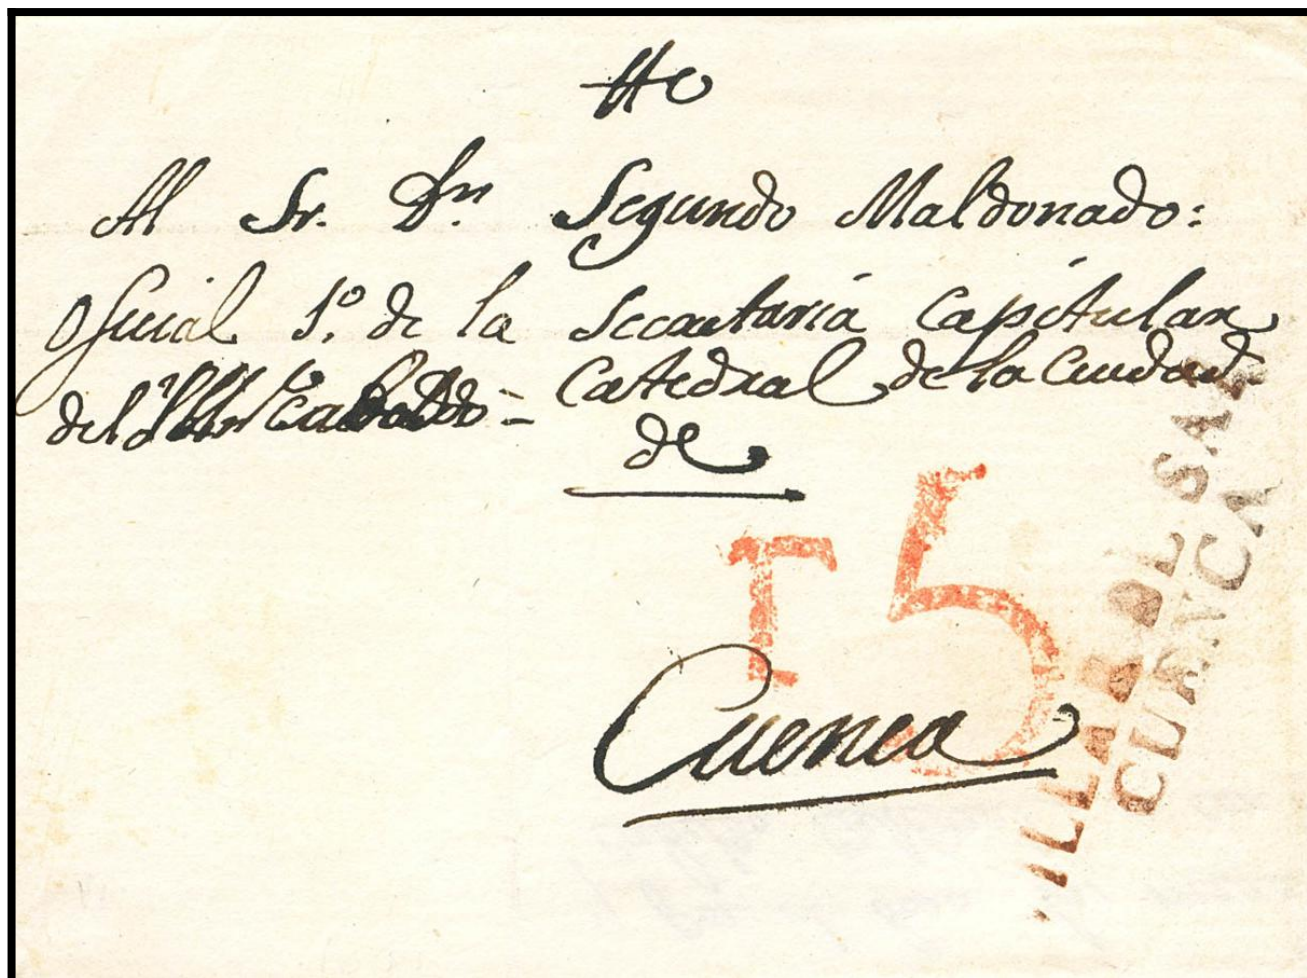 Al Sr. Dn. Segundo Maldonado:
Oficial 1º. de la Secretaría Capitular
del Cabildo = Catedral de la Ciudad
de
15
Cuenca
VILLAR DEL SAZ
CUENCA